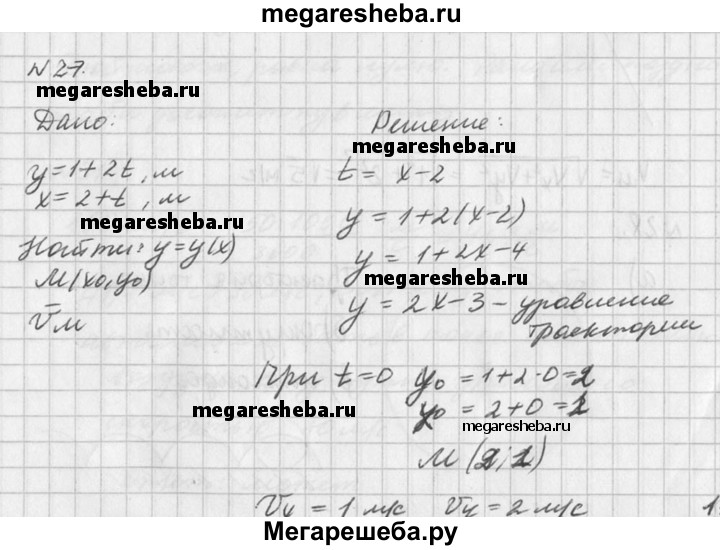 megaresheba.ru
N 27.
megaresheba.ru
Дано:
y=1+2t, м
x=2+t, м
megaresheba.ru
Найти: y=y(x)
M(x₀,y₀)
V̄м
Решение:
megaresheba.ru
t= x-2
y=1+2(x-2)
y=1+2x-4
megaresheba.ru
y=2x-3 - уравнение
траектории
При t=0 y₀=1+2·0=
megaresheba.ru
y₀=2+0=
megaresheba.ru
M
Vx=1 м/с Vy=2 м/с
Мегарешеба.ру